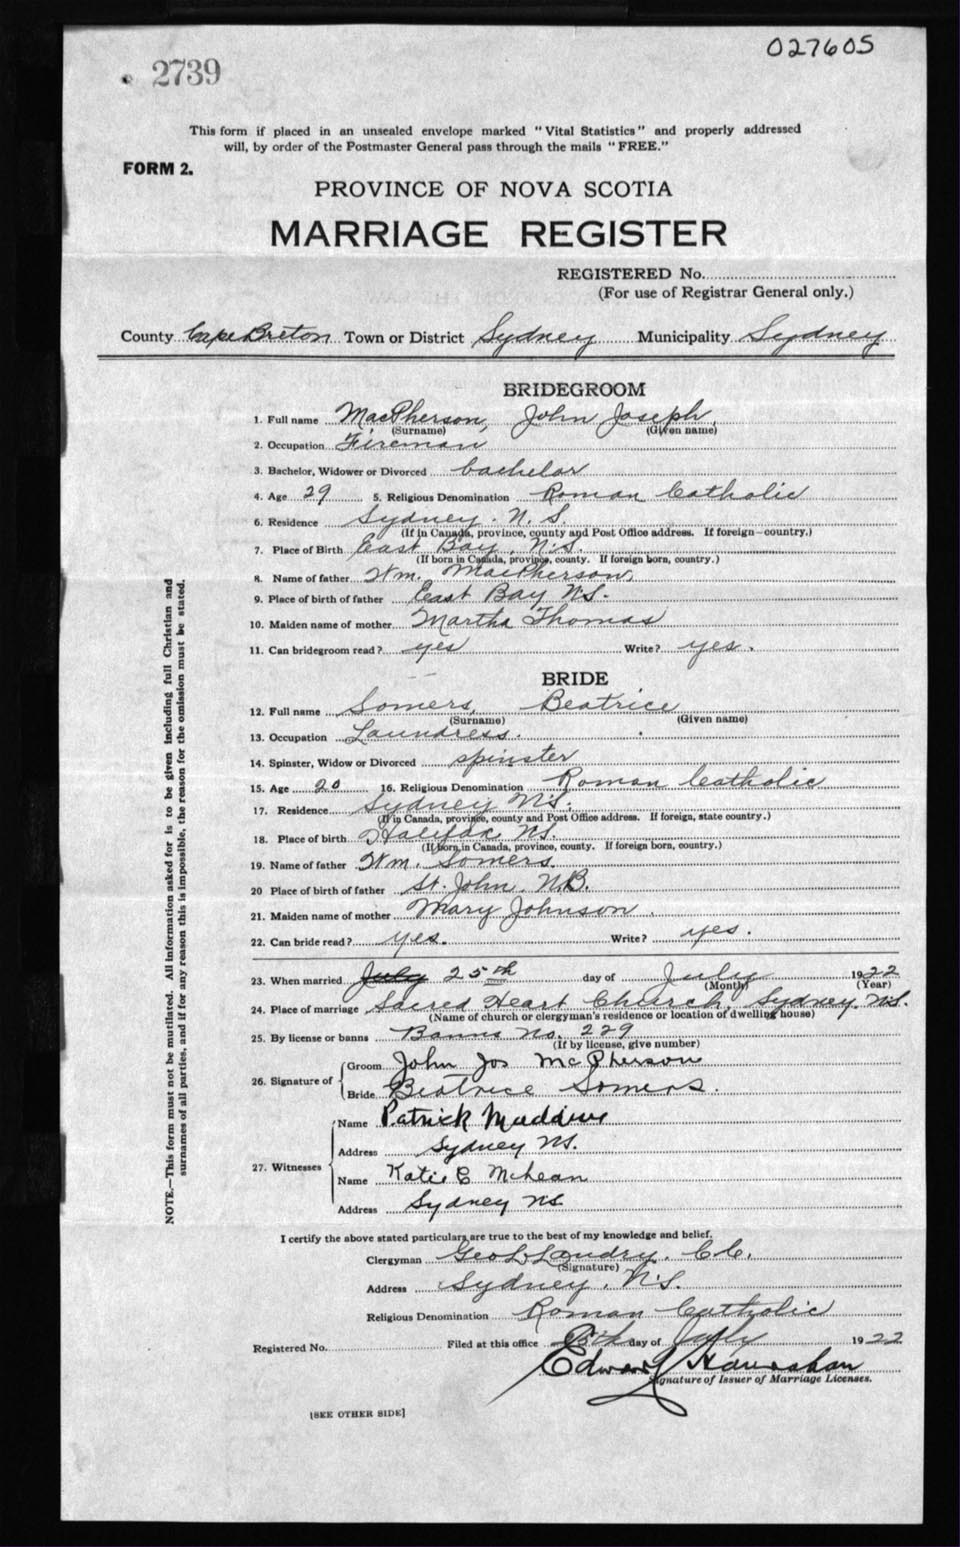 027605
2739
This form if placed in an unsealed envelope marked "Vital Statistics" and properly addressed
will, by order of the Postmaster General pass through the mails "FREE."
FORM 2.
PROVINCE OF NOVA SCOTIA
MARRIAGE REGISTER
REGISTERED No.
(For use of Registrar General only.)
County Cape Breton Town or District Sydney Municipality Sydney
BRIDEGROOM
1. Full name MacPherson, John Joseph
(Surname) (Given name)
2. Occupation Fireman
3. Bachelor, Widower or Divorced bachelor
4. Age 29 5. Religious Denomination Roman Catholic
6. Residence Sydney. N.S.
(If in Canada, province, county and Post Office address. If foreign—country.)
7. Place of Birth East Bay, N.S.
(If born in Canada, province, county. If foreign born, country.)
8. Name of father Wm. MacPherson,
9. Place of birth of father East Bay N.S.
10. Maiden name of mother Martha Thomas
11. Can bridegroom read? yes Write? yes.
BRIDE
12. Full name Somers, Beatrice
(Surname) (Given name)
13. Occupation Laundress.
14. Spinster, Widow or Divorced spinster
15. Age 20 16. Religious Denomination Roman Catholic
17. Residence Sydney N.S.
(If in Canada, province, county and Post Office address. If foreign, state country.)
18. Place of birth Halifax N.S.
(If born in Canada, province, county. If foreign born, country.)
19. Name of father Wm. Somers
20 Place of birth of father St. John, N.B.
21. Maiden name of mother Mary Johnson.
22. Can bride read? yes. Write? yes.
23. When married July 25th day of July 1922
(Month) (Year)
24. Place of marriage Sacred Heart Church, Sydney, N.S.
(Name of church or clergyman's residence or location of dwelling house)
25. By license or banns Banns No. 229
(If by license, give number)
26. Signature of
Groom John Jos McPherson
Bride Beatrice Somers.
27. Witnesses
Name Patrick
Address Sydney N.S.
Name Katie
Address Sydney N.S.
I certify the above stated particulars are true to the best of my knowledge and belief.
Clergyman Geo L Landry, C.C.
(Signature)
Address Sydney, N.S.
Religious Denomination Roman Catholic
Registered No. Filed at this office day of July 1922
Edward
Signature of Issuer of Marriage Licenses.
[SEE OTHER SIDE]
NOTE.—This form must not be mutilated. All information asked for is to be given including full Christian and
surnames of all parties, and if for any reason this is impossible, the reason for the omission must be stated.